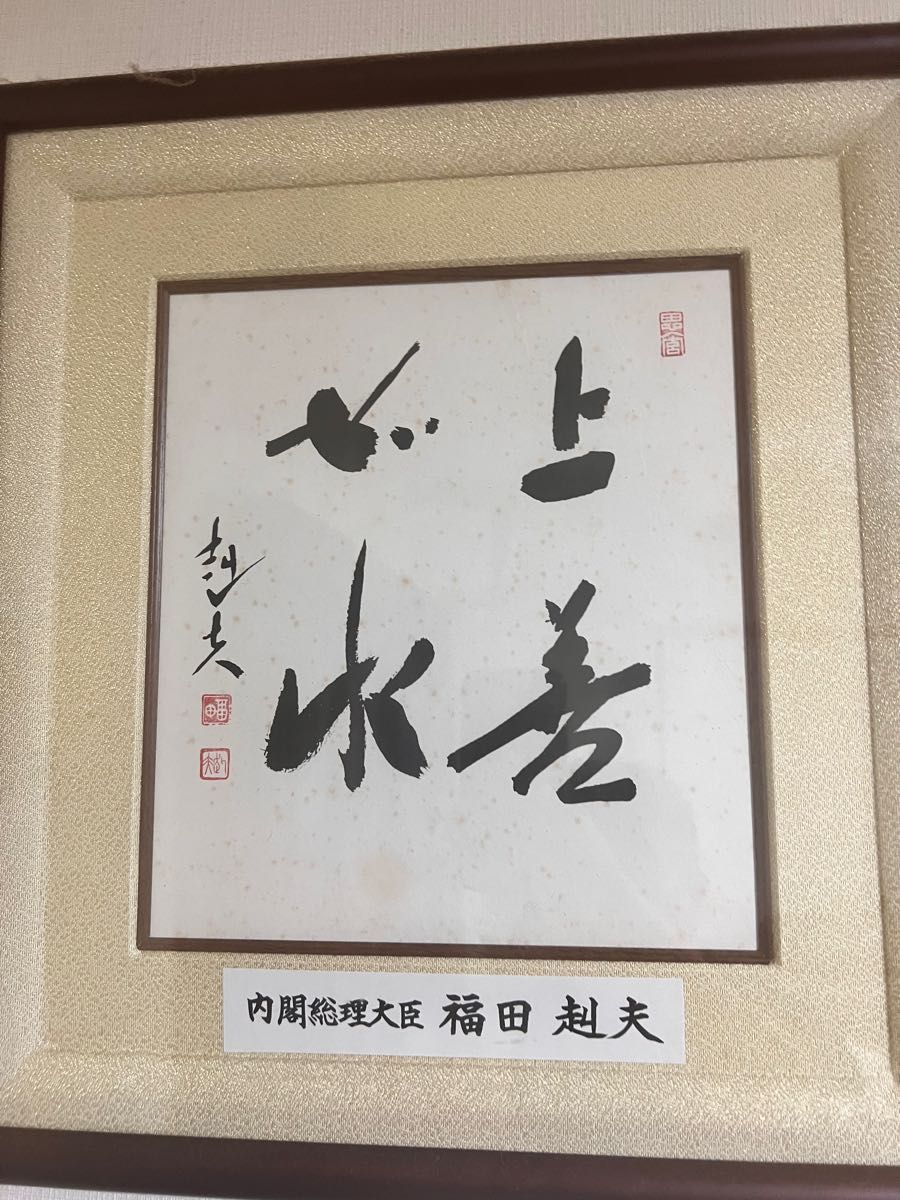 上善
如水
赳夫
内閣総理大臣 福田 赳夫